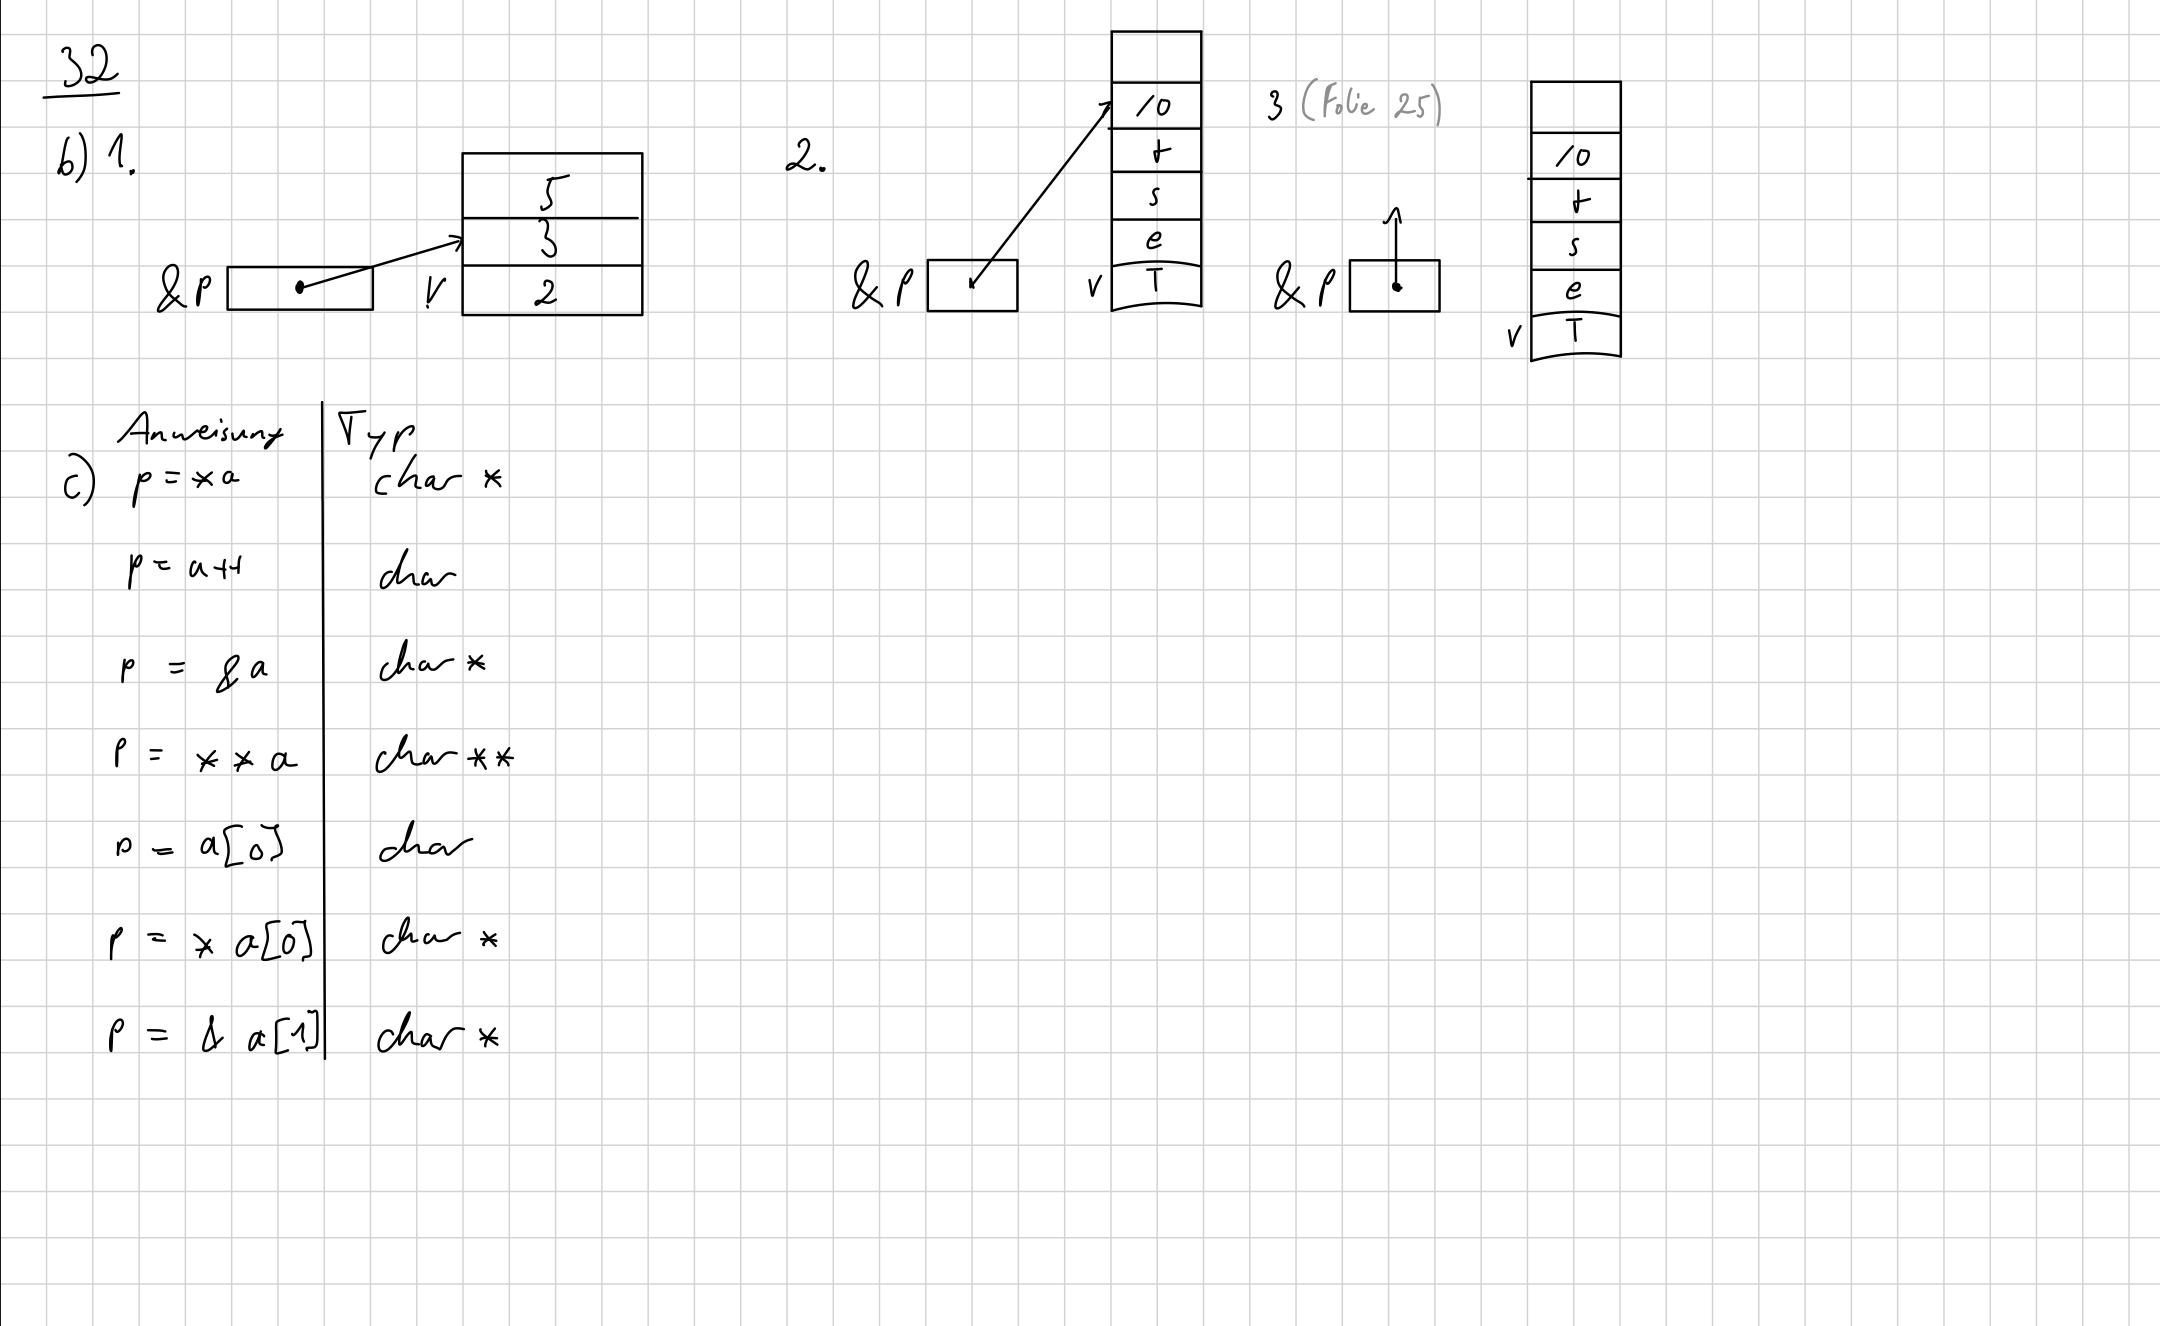 32
b) 1.
5
3
2
& p
V
2.
/0
t
s
e
T
& p
v
3 (Folie 25)
/0
t
s
e
T
& p
v
Anweisung Typ
c) p = *a char *
p = a++ char
p = &a char *
p = **a char **
p = a[0] char
p = *a[0] char *
p = &a[1] char *